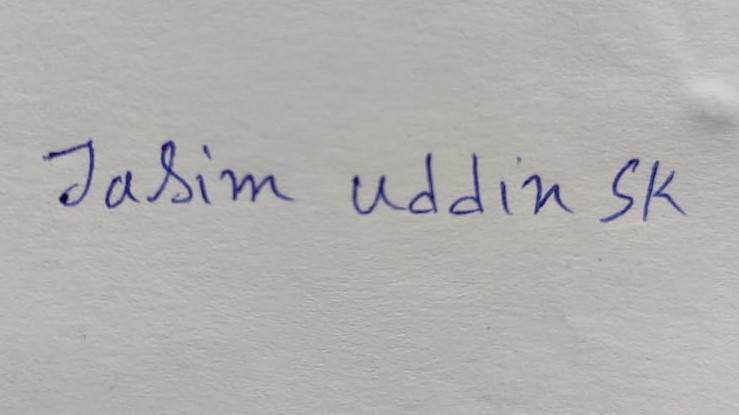 Jasim uddin SK